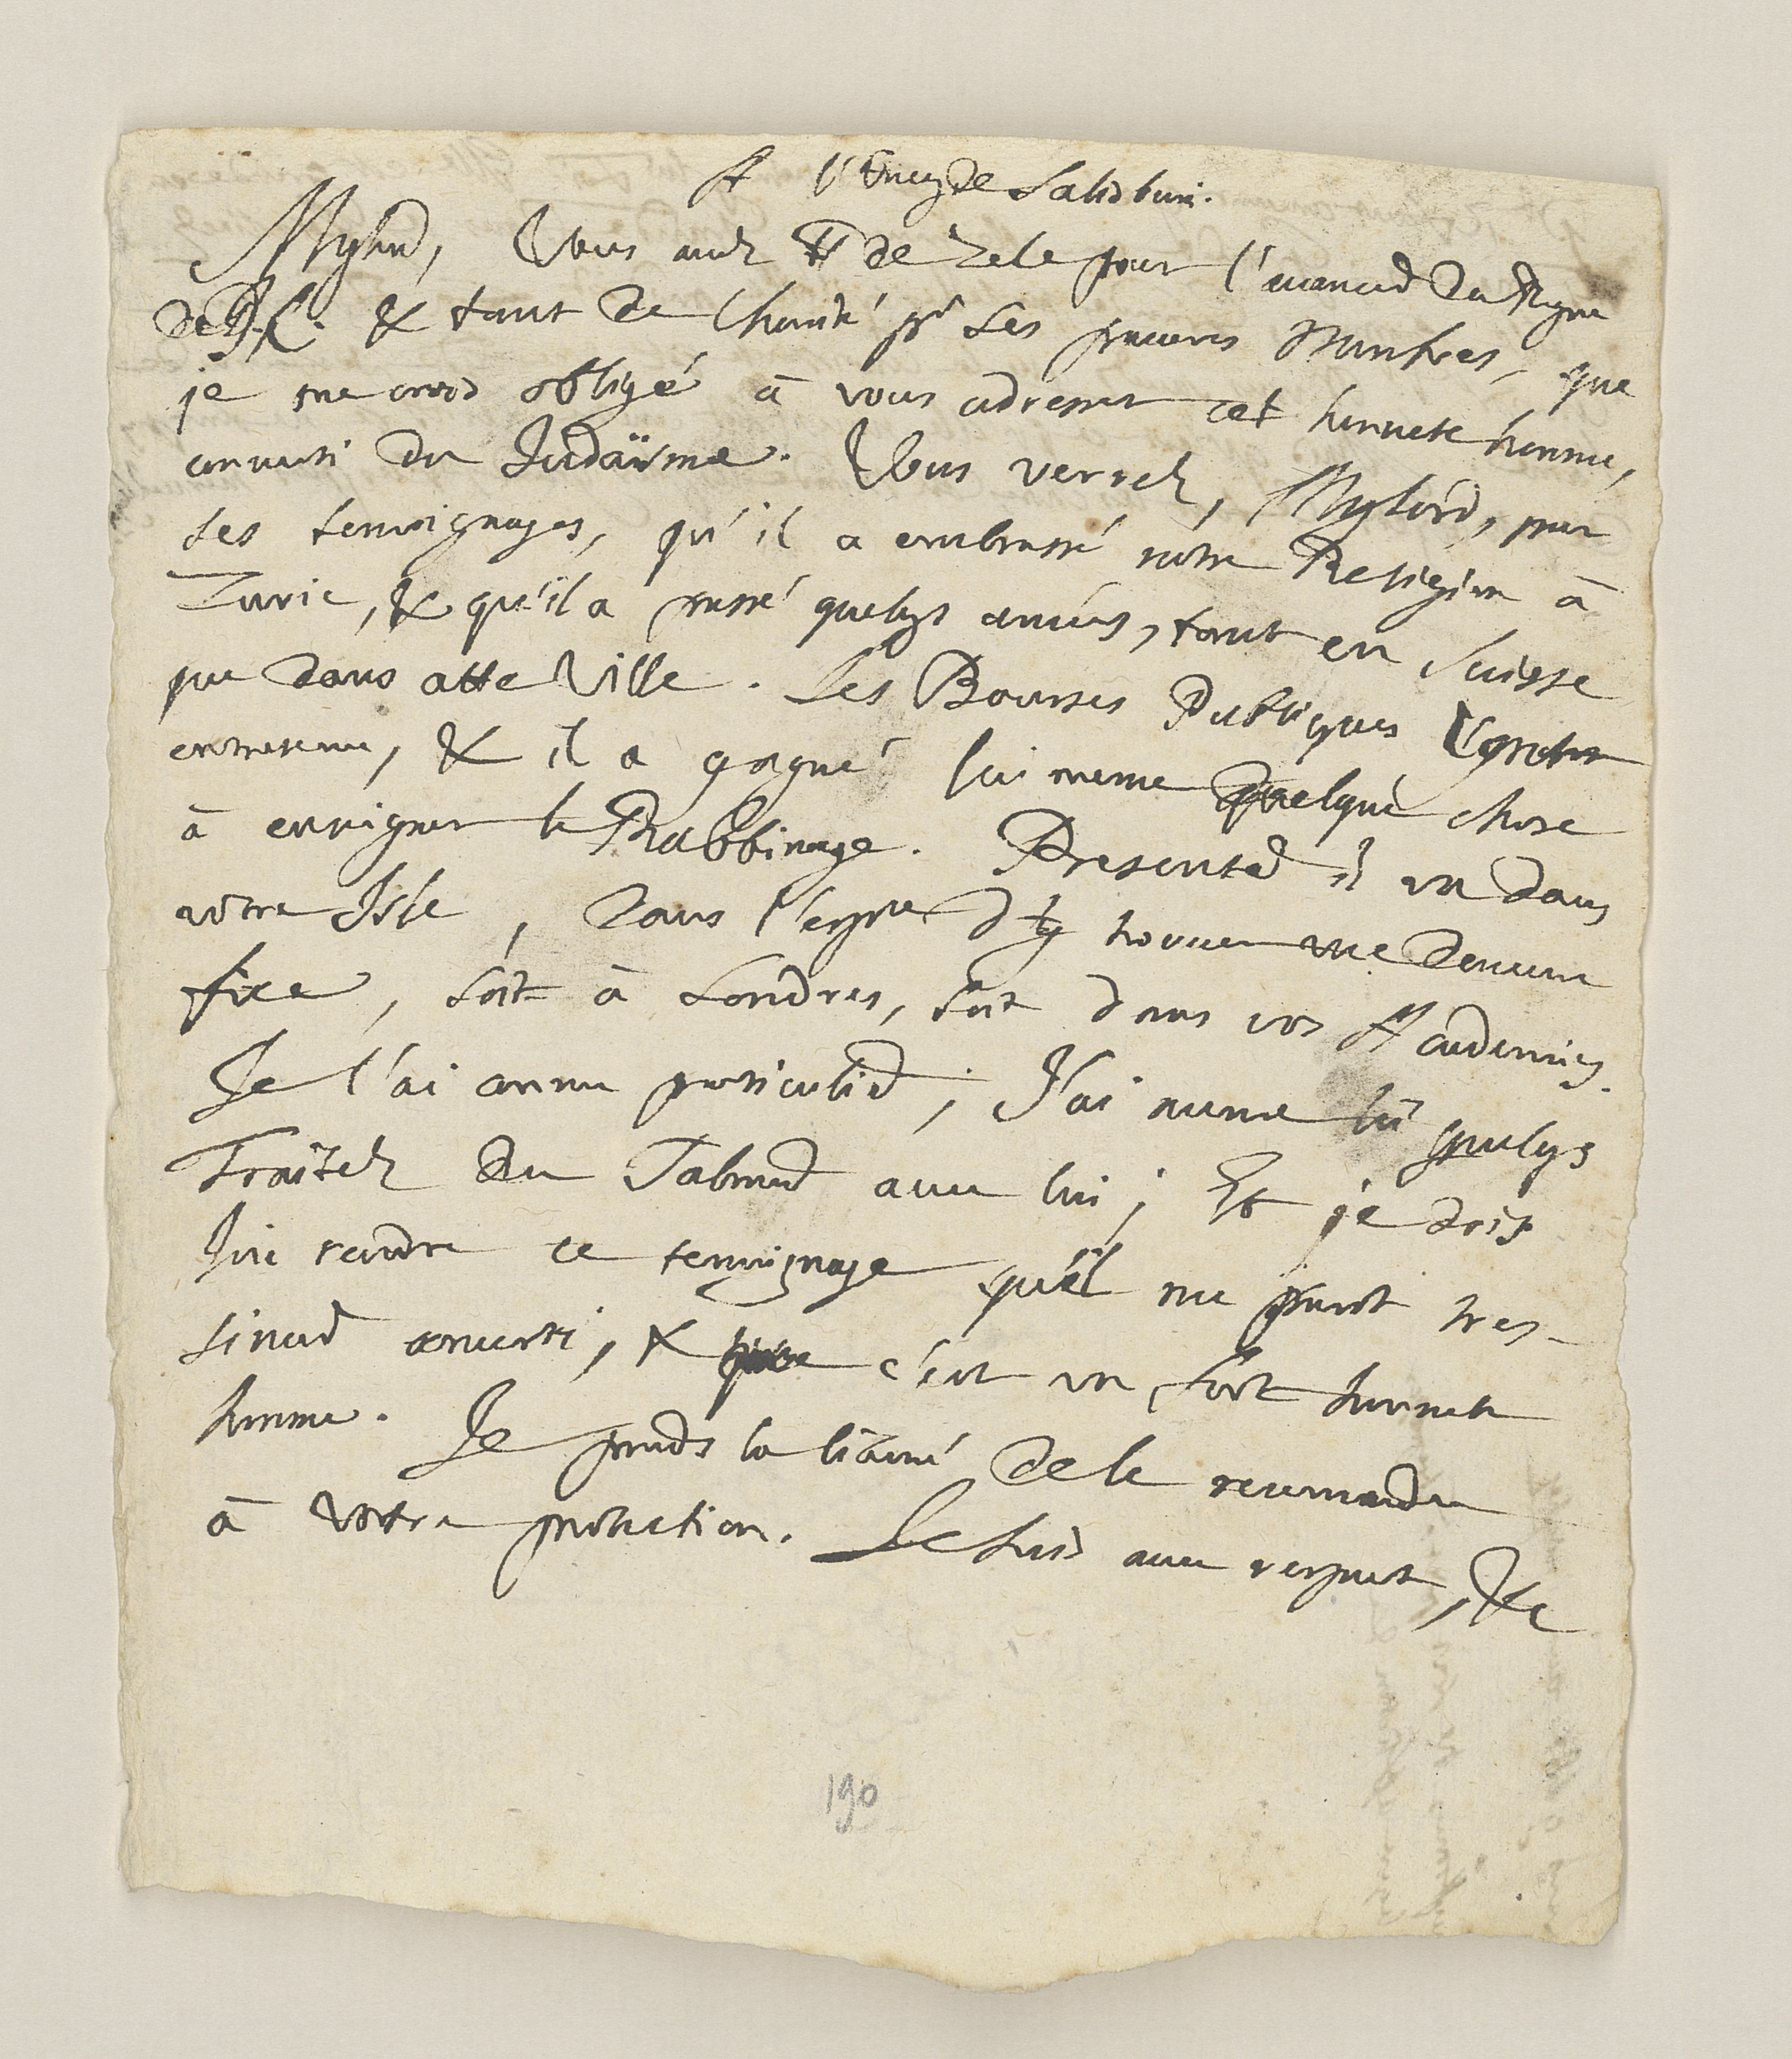 A l'Eveq de Salisburi.
Mylord, Vous avez tt de zele pour l'avancemt du Regne
de J.C. & tant de Charité pr ses pauvres Membres, que
je me crois obligé à vous adresser cet honnete homme,
converti du Judaïsme. Vous verrez, Mylord, par
ses temoignages, qu'il a embrassé nôtre Religion à
Zuric, & qu'il a passé quelqs années, tant en Suisse
que dans cette Ville. Les Bourses Publiques l'ont
entretenu, & il a gagné lui meme quelque chose
à enseigner le Rabbinage. Presentemt il va dans
vôtre Isle, dans l'espce d'y trouver une demeure
fixe, soit à Londres, soit dans vos Academies.
Je l'ai connu particulieremt; J'ai meme lû quelqs
Traitez du Talmud avec lui; Et je dois
lui rendre ce temoignage qu'il me paroit tres-
sincerem̄t converti, & que c'est un fort honnete
homme. Je prends la liberté de le recommander
à vôtre protection. Je suis avec respect, &c
190